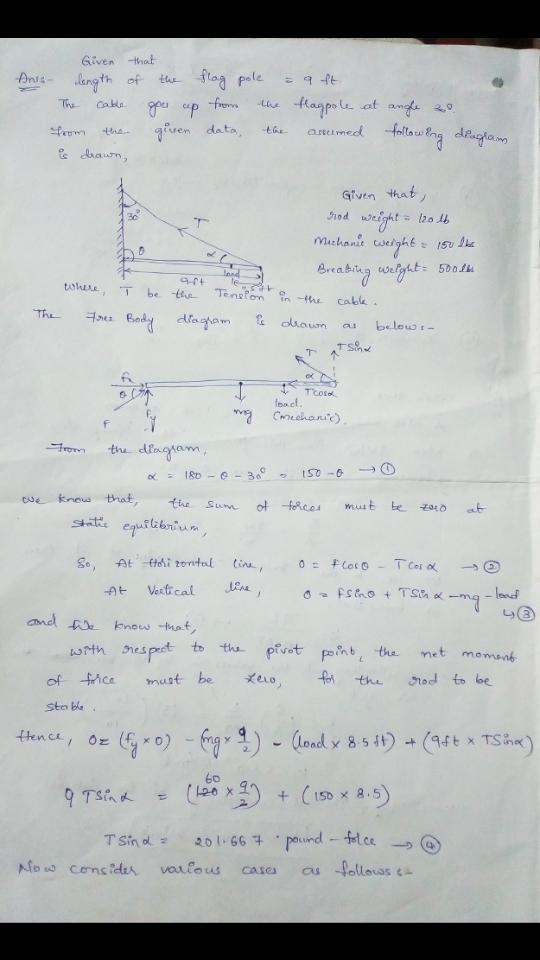 Given that
Ans- length of the flag pole = 9 ft
The cable goes up from the flagpole at angle 30°.
From the given data, the assumed following diagram
is drawn,
30°
T
θ
α
load
9ft
0.5ft
Given that,
rod weight = 120 lb
Mechanic weight = 150 lbs
Breaking weight = 500 lbs
where, T be the Tension in the cable.
The Free Body diagram is drawn as below:-
T
TSinα
α
Tcosα
fx
θ
F
fy
mg
load.
(mechanic).
From the diagram,
α = 180 - θ - 30° = 150 - θ → ①
We know that, the sum of forces must be zero at
static equilibrium,
So, At Horizontal line, 0 = Fcosθ - Tcosα → ②
At Vertical line, 0 = FSinθ + TSinα - mg - load
↳ ③
and We know that,
with respect to the pivot point, the net moment
of force must be zero, for the rod to be
stable.
Hence, 0 = (fy × 0) - (mg × 9/2) - (load × 8.5 ft) + (9ft × TSinα)
60
9 TSinα = (120 × 9/2) + (150 × 8.5)
TSinα = 201.667 pound - force → ④
Now consider various cases as follows:-